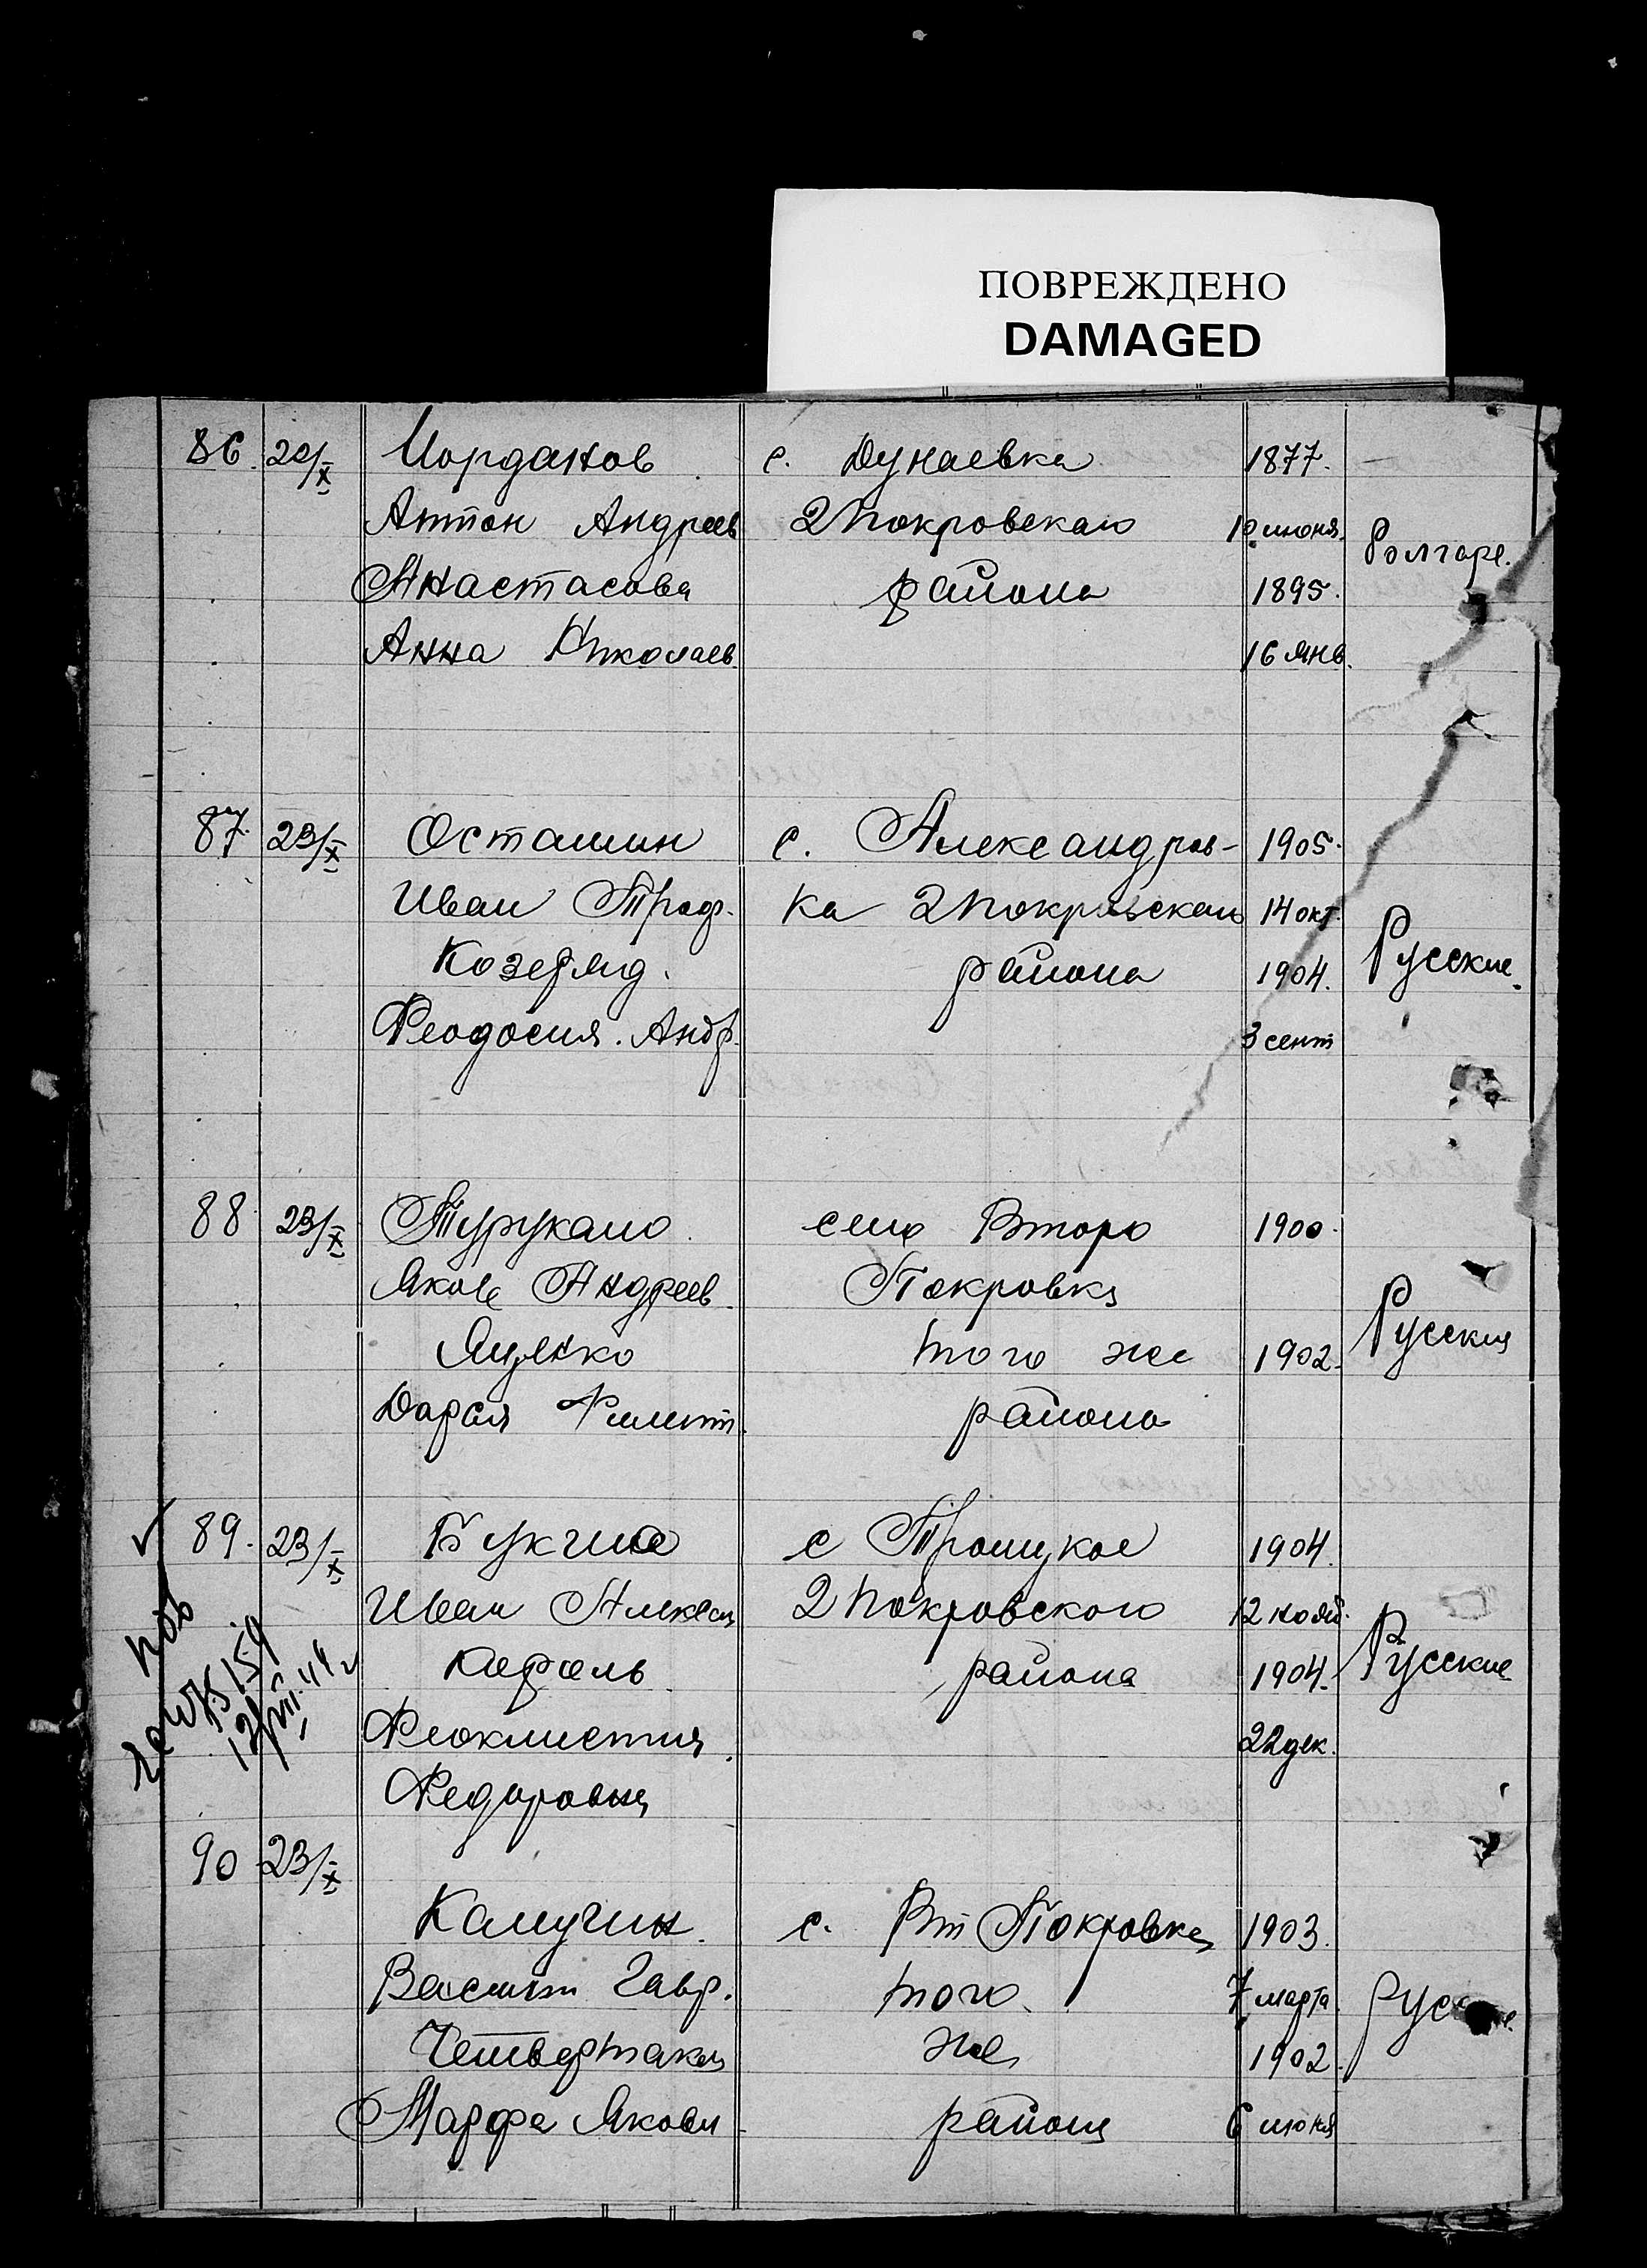 ПОВРЕЖДЕНО
DAMAGED
86. 22/X Иорданов с. Дунаевка 1877. —
Антон Андреев 2 Покровского 10 июня.
Болгаре.
Анастасова района 1895.
Анна Николаев. 16 янв.
87. 23/X Осташин с. Александров- 1905.
Иван Троф. ка 2 Покровского 14 окт.
Русские.
района 1904.
Феодосия. Андр. 3 сент
88 23/X Турукало село Второ 1900.
Яков Андреев Покровка
Русские
Яценко того же 1902.
Дарья Филип. района
89. 23/X с Троицкое 1904.
Иван Алексеи 2 Покровского 12 нояб.
Русские
района 1904.
Феоклистия 22 дек.
Федоровна
№ 159
12/VIII. 44 г
90 23/X
с. Вт Покровка 1903.
Василий Гавр. того 7 марта
Русские.
Четвертакова же 1902.
Марфа Яковл района 6 июня